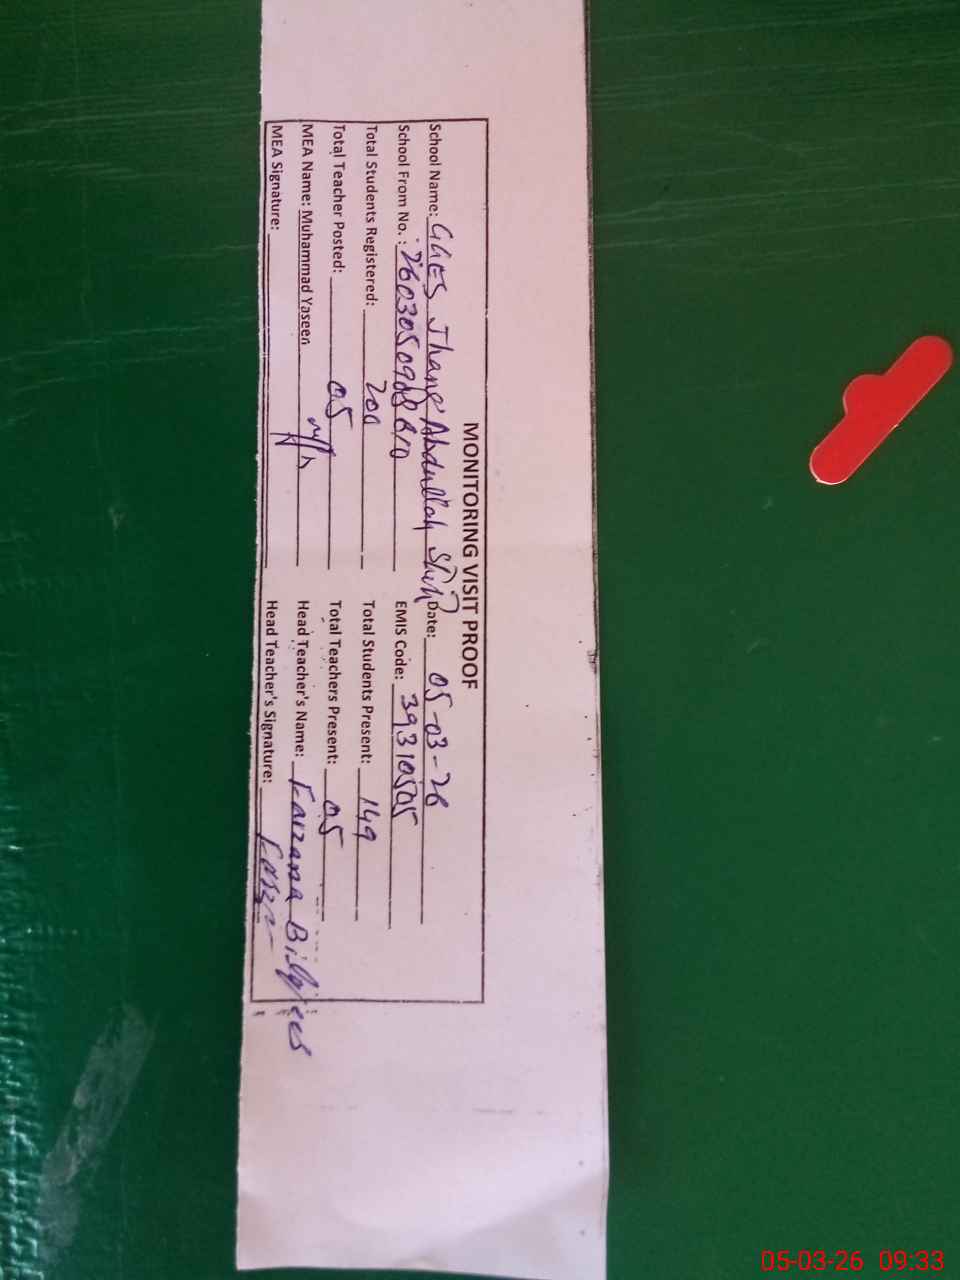 MONITORING VISIT PROOF
School Name: GGES Jhang Abdullah Shah Date: 05-03-26
School From No. : EMIS Code: 39310505
Total Students Registered: 200 Total Students Present: 149
Total Teacher Posted: 05 Total Teachers Present: 05
MEA Name: Muhammad Yaseen Head Teacher's Name: Farzana Bilqees
MEA Signature: Head Teacher's Signature:
05-03-26 09:33